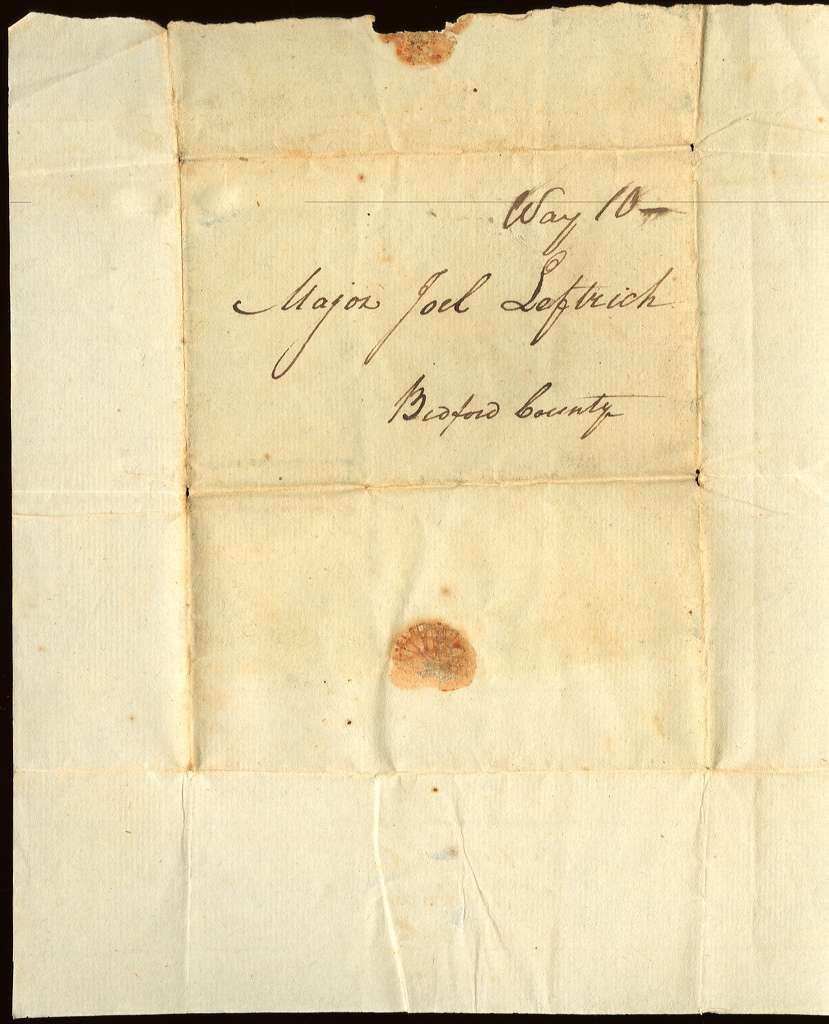 Way 10—
Major Joel Leftrich
Bedford County